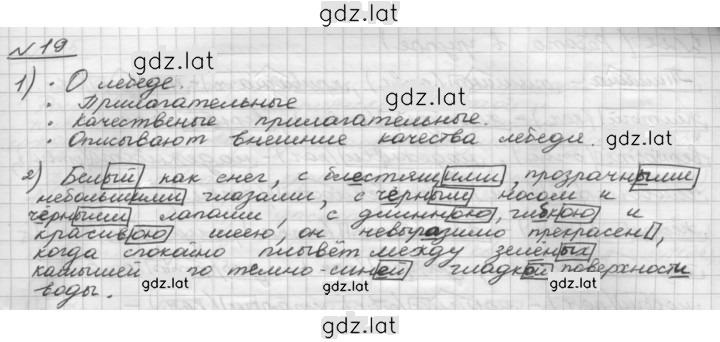 gdz.lat
№ 19
gdz.lat
1) · О лебеде.
· Прилагательные
gdz.lat
· Качественые прилагательные.
· Описывают внешние качества лебеди.
gdz.lat
gdz.lat
2) Белый как снег, с блестящими, прозрачными
небольшими глазами, с чёрным носом и
чёрными лапами, с длинною, гибкою и
красивою шеею, он невыразимо прекрасен,
когда спокойно плывёт между зелёных
камышей по темно-синей гладкой поверхности
воды.
gdz.lat
gdz.lat
gdz.lat
gdz.lat